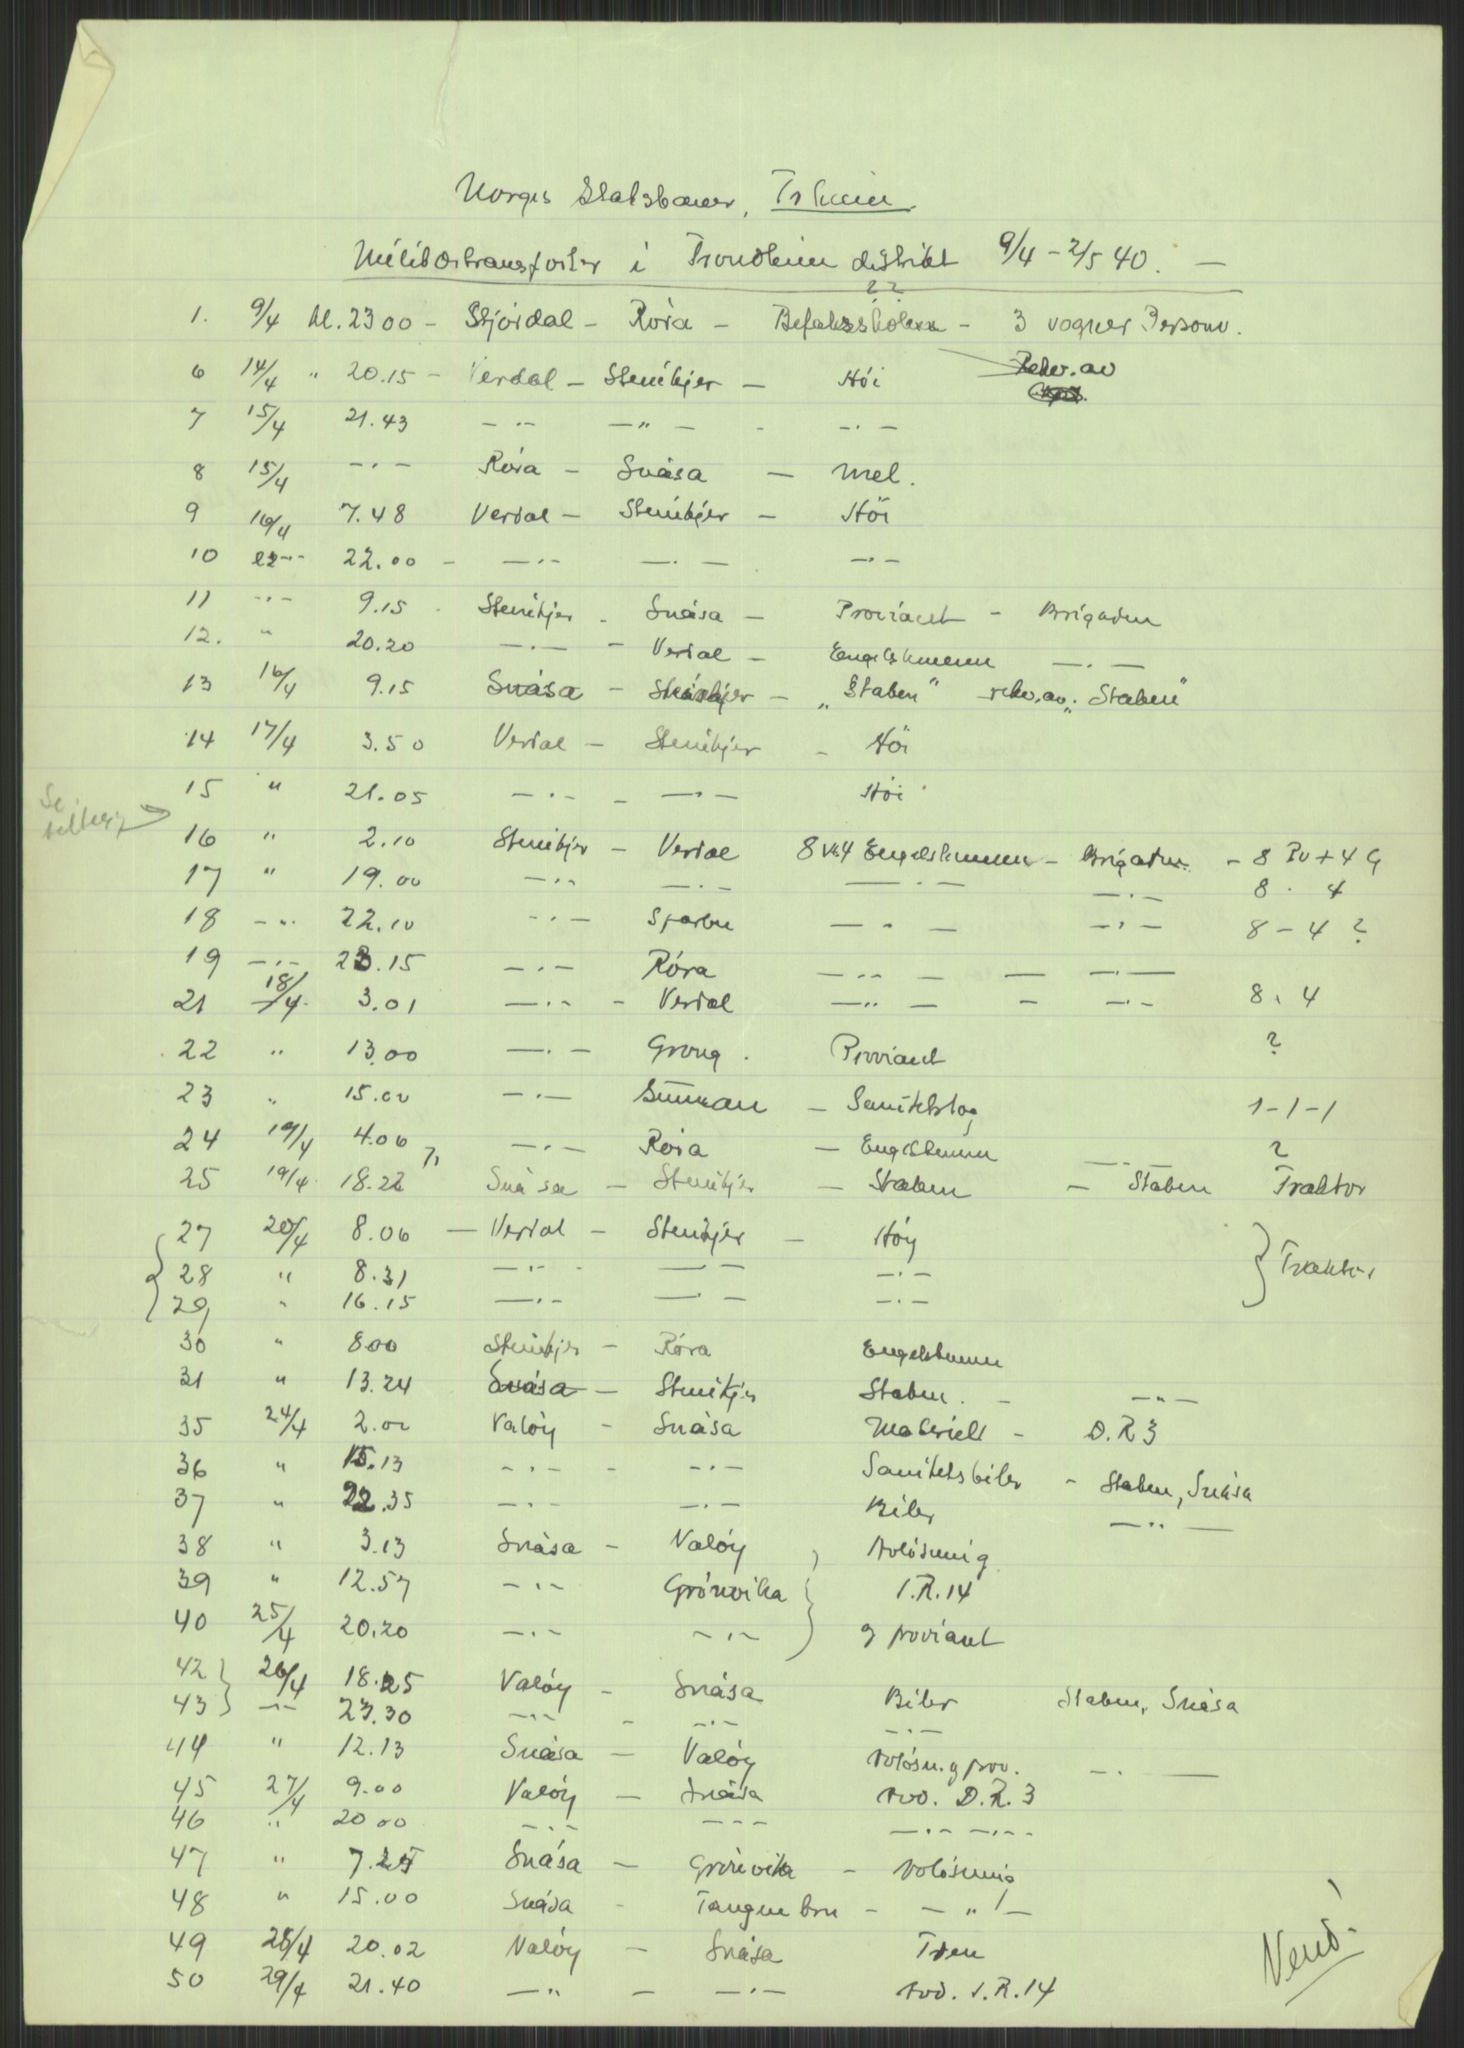 Norges Statsbaner, Trheim
Militærtransporter i Trondheim distrikt 9/4 - 2/5 40. —
??
1. 9/4 kl. 23 00 - Stjördal - Röra - Befalsskolen - 3 vogner Personv.
6 14/4 " 20.15 - Verdal - Steinkjer - Höi Rekv. av
7 15/4 21.43 - " - - " - - - " -
8 15/4 - " - Röra - Snåsa - Mel.
9 16/4 7.48 Verdal - Steinkjer - Höi
10 - " - 22.00 - - " - - " - - " -
11 - " - 9.15 - Steinkjer - Snåsa - Proviant - Brigaden
12. " 20.20 - " - - Verdal - Engelskmenn - " -
13 16/4 9.15 Snåsa - Steinkjer - "Staben" rekv. av "Staben"
14 17/4 3.50 Verdal - Steinkjer - Höi
15 " 21.05 - " - - - " - Höi
Se
16 " 2.10 Steinkjer - Verdal 8 + 4 Engelskmenn - Brigaden - 8 Pv + 4 G
17 " 19.00 - " - - " - - " - - " - 8 . 4
18 - " - 22.10 - " - Sparbu - " - - " - 8 - 4 ?
19 - " - 23.15 - " - Röra - " - - - " -
21 18/4 3.01 - " - - Verdal - " - - - " - 8 . 4
22 " 13.00 - " - Grong . Proviant ?
23 " 15.00 - " - Sunnan - Sanitetstog 1 - 1 - 1
24 19/4 4.06 - " - Röra - Engelskmenn - " - ?
25 19/4 18.22 Snåsa - Steinkjer - Staben - Staben Traktor
27 20/4 8.06 - Verdal - Steinkjer - Höy
28 " 8.31 - " - - " - - " - } Traktor
29 " 16.15 - " - - " - - " -
30 " 8 00 Steinkjer - Röra Engelskmenn
31 " 13.24 Snåsa - Steinkjer Staben. - - " -
35 24/4 2.00 Valöy - Snåsa Materiell - D.R 3
36 " 15.13 - " - - - " - Sanitetsbiler - Staben, Snåsa
37 " 22.35 - " - - " - Biler - " -
38 " 3.13 Snåsa - Valöy Avlösning
39 " 12.57 - " - Grönvika } I.R.14
40 25/4 20.20 - " - - " - og proviant
42 } 26/4 18.25 Valöy - Snåsa Biler Staben, Snåsa
43 - " - 23.30 - " - - - " - - " -
44 " 12.13 Snåsa - Valöy Avlösn. og prov. - " -
45 27/4 9.00 Valöy - Snåsa Avd. D.R. 3
46 " 20 00 - " - - " - - " - - " -
47 " 7.25 Snåsa - Grönvika - Avlösning
48 " 15.00 Snåsa - Tangen bru - - " -
49 28/4 20.02 Valöy - Snåsa Tren
50 29/4 21.40 - " - - - " - Avd. I.R.14
Vend.